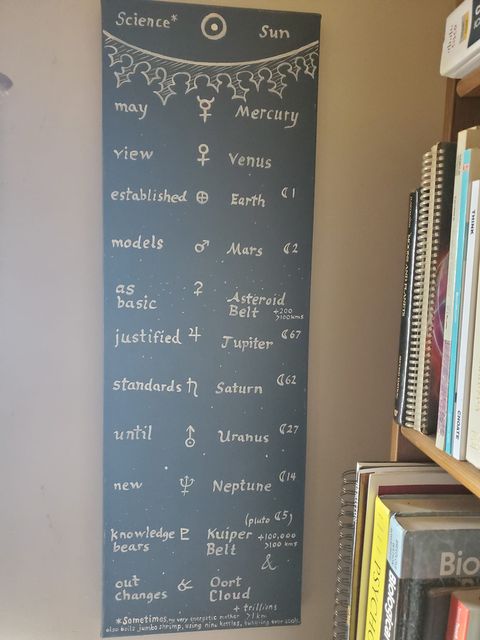 Science* Sun
may Mercury
view Venus
established Earth ☾1
models Mars ☾2
as
basic
Asteroid
Belt +200
>100kms
justified Jupiter ☾67
standards Saturn ☾62
until Uranus ☾27
new Neptune ☾14
(pluto ☾5)
knowledge
bears
Kuiper
Belt
+100,000
>100 kms
&
out
changes
Oort
Cloud
+ trillions
>1 km
*Sometimes, my very energetic mother
also boils jumbo shrimp, using nine kettles, over coals.
THINK
CHOATE
PSYCH
Biological
Bio